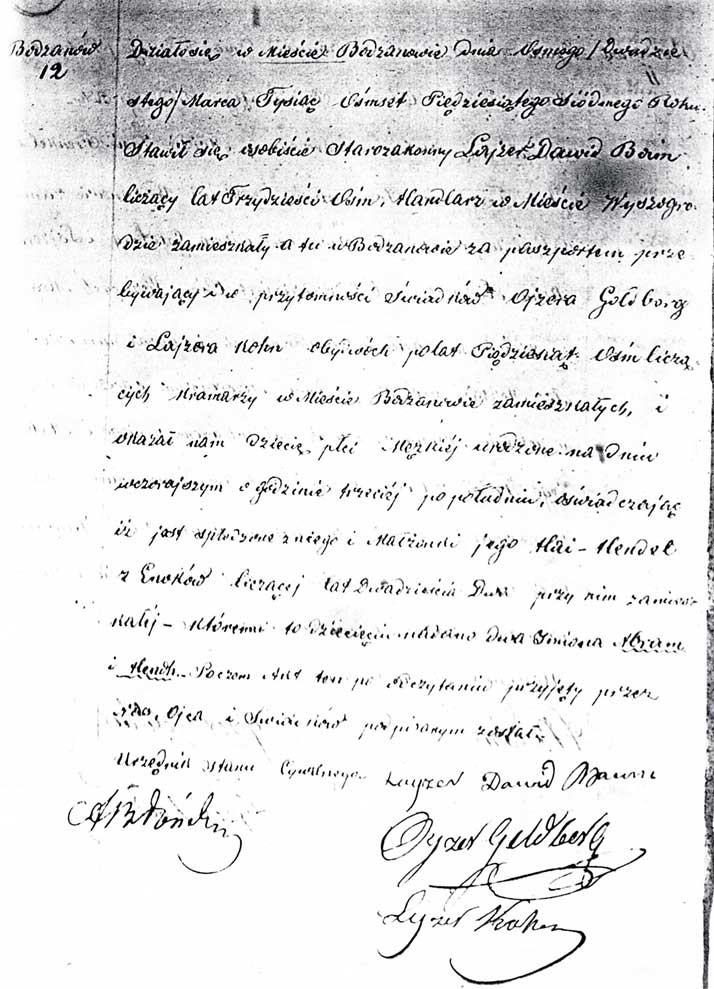 Bodzanów
12
Działo się w Mieście Bodzanowie dnia Osmego / Dwudzie
stego / Marca Tysiąc Ośmset Piędziesiątego siódmego Roku.
Stawił się osobiście Starozakonny Lajzer Dawid Baum
liczący lat Trzydzieści Ośm, Handlarz w Mieście Wyszogro
dzie zamieszkały a tu w Bodzanowie za paszportem prze
bywający i w przytomności świadków Ojzera Goldberg
i Lajzera Kohn obydwóch po lat Piędziesiąt Ośm liczą
cych Kramarzy w Mieście Bodzanowie zamieszkałych, i
okazał nam dziecię płci Męzkiéj urodzone na dniu
wczorajszym o godzinie trzeciéj po południu, oświadczając
iż jest spłodzone z niego i Małżonki jego Hai-Hendel
z Enoków liczącéj lat Dwadzieścia Dwa przy nim zamiesz
kałéj – któremu to dziecięciu nadano dwa Imiona Abram
i Hendh. Poczem Akt ten po odczytaniu przyjęty przez
nas, Ojca, i Świadków podpisanym został.
Urzędnik stanu Cywilnego Layzer Dawid Baum
Oyzer Geldberg
Leyzer Kohn